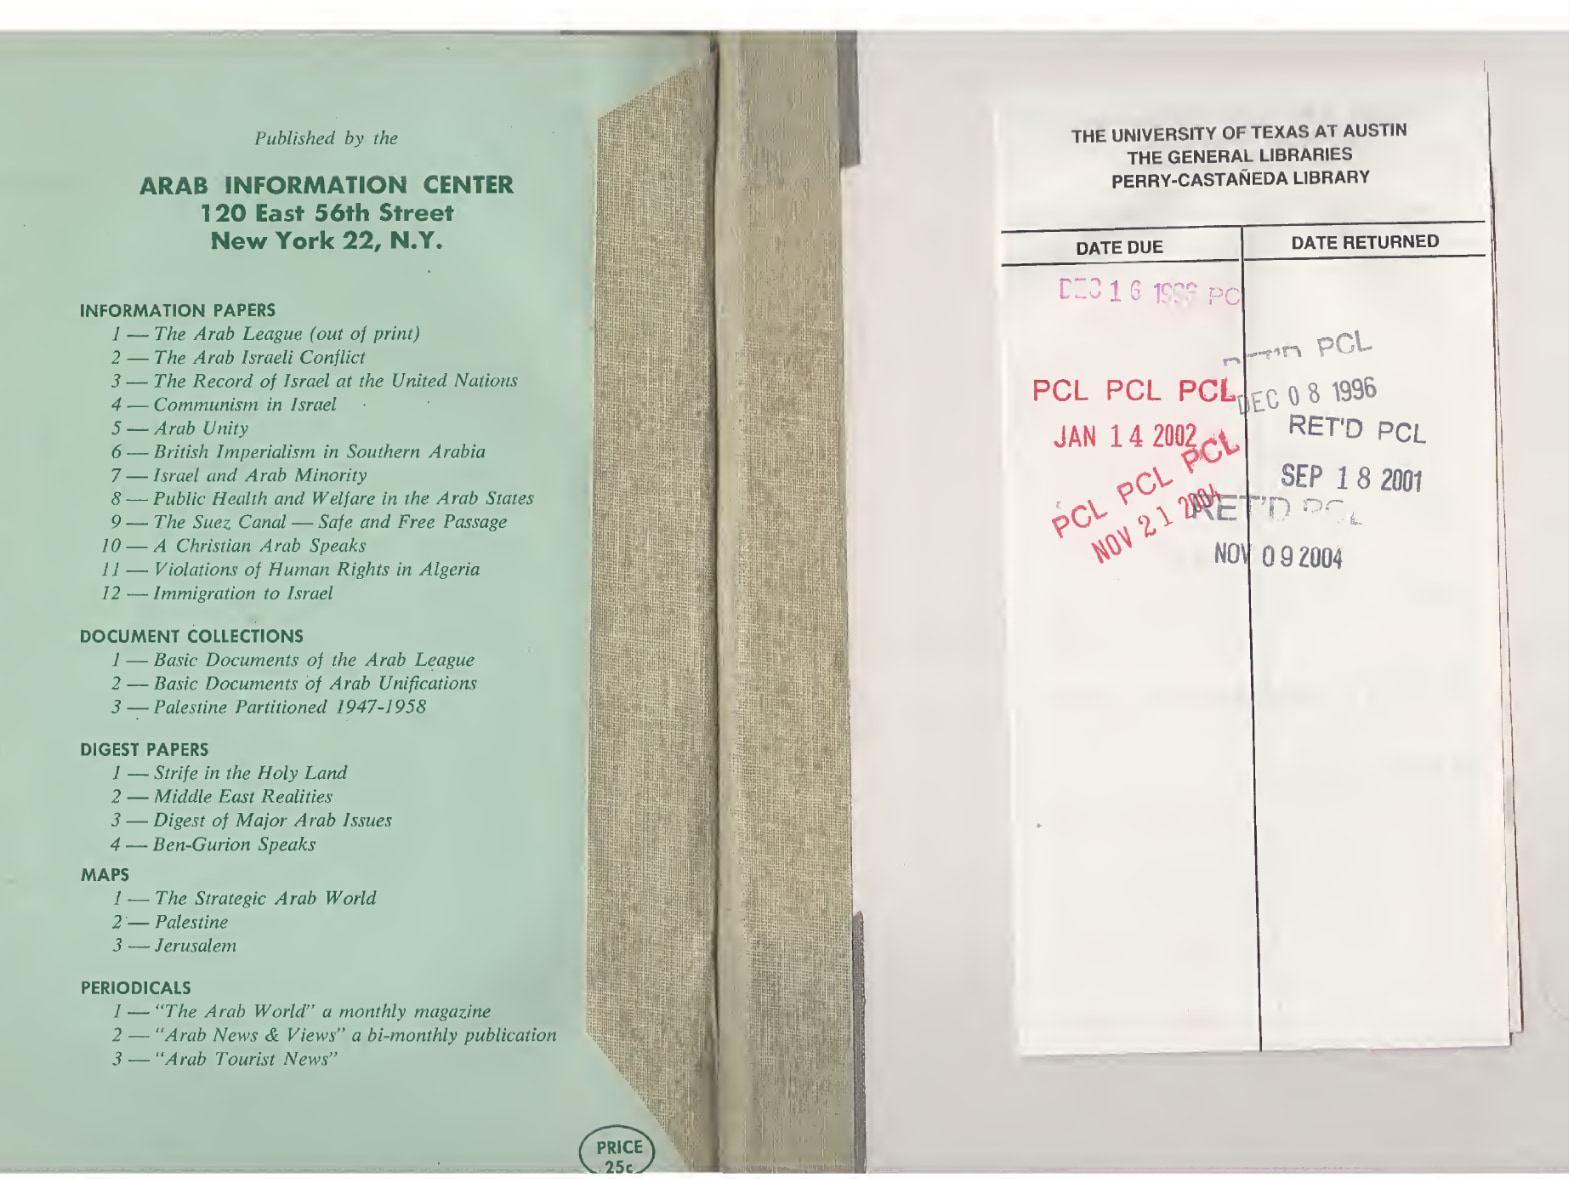 Published by the
ARAB INFORMATION CENTER
120 East 56th Street
New York 22, N.Y.
INFORMATION PAPERS
1 — The Arab League (out of print)
2 — The Arab Israeli Conflict
3 — The Record of Israel at the United Nations
4 — Communism in Israel
5 — Arab Unity
6 — British Imperialism in Southern Arabia
7 — Israel and Arab Minority
8 — Public Health and Welfare in the Arab States
9 — The Suez Canal — Safe and Free Passage
10 — A Christian Arab Speaks
11 — Violations of Human Rights in Algeria
12 — Immigration to Israel
DOCUMENT COLLECTIONS
1 — Basic Documents of the Arab League
2 — Basic Documents of Arab Unifications
3 — Palestine Partitioned 1947-1958
DIGEST PAPERS
1 — Strife in the Holy Land
2 — Middle East Realities
3 — Digest of Major Arab Issues
4 — Ben-Gurion Speaks
MAPS
1 — The Strategic Arab World
2 — Palestine
3 — Jerusalem
PERIODICALS
1 — “The Arab World” a monthly magazine
2 — “Arab News & Views” a bi-monthly publication
3 — “Arab Tourist News”
PRICE
25c
THE UNIVERSITY OF TEXAS AT AUSTIN
THE GENERAL LIBRARIES
PERRY-CASTAÑEDA LIBRARY
DATE DUE
DATE RETURNED
DEC 16 PC
RET'D PCL
DEC 08 1996
PCL PCL PCL
JAN 14 2002
RET'D PCL
SEP 18 2001
PCL PCL PCL
NOV 21 2004
RET'D PCL
NOV 09 2004